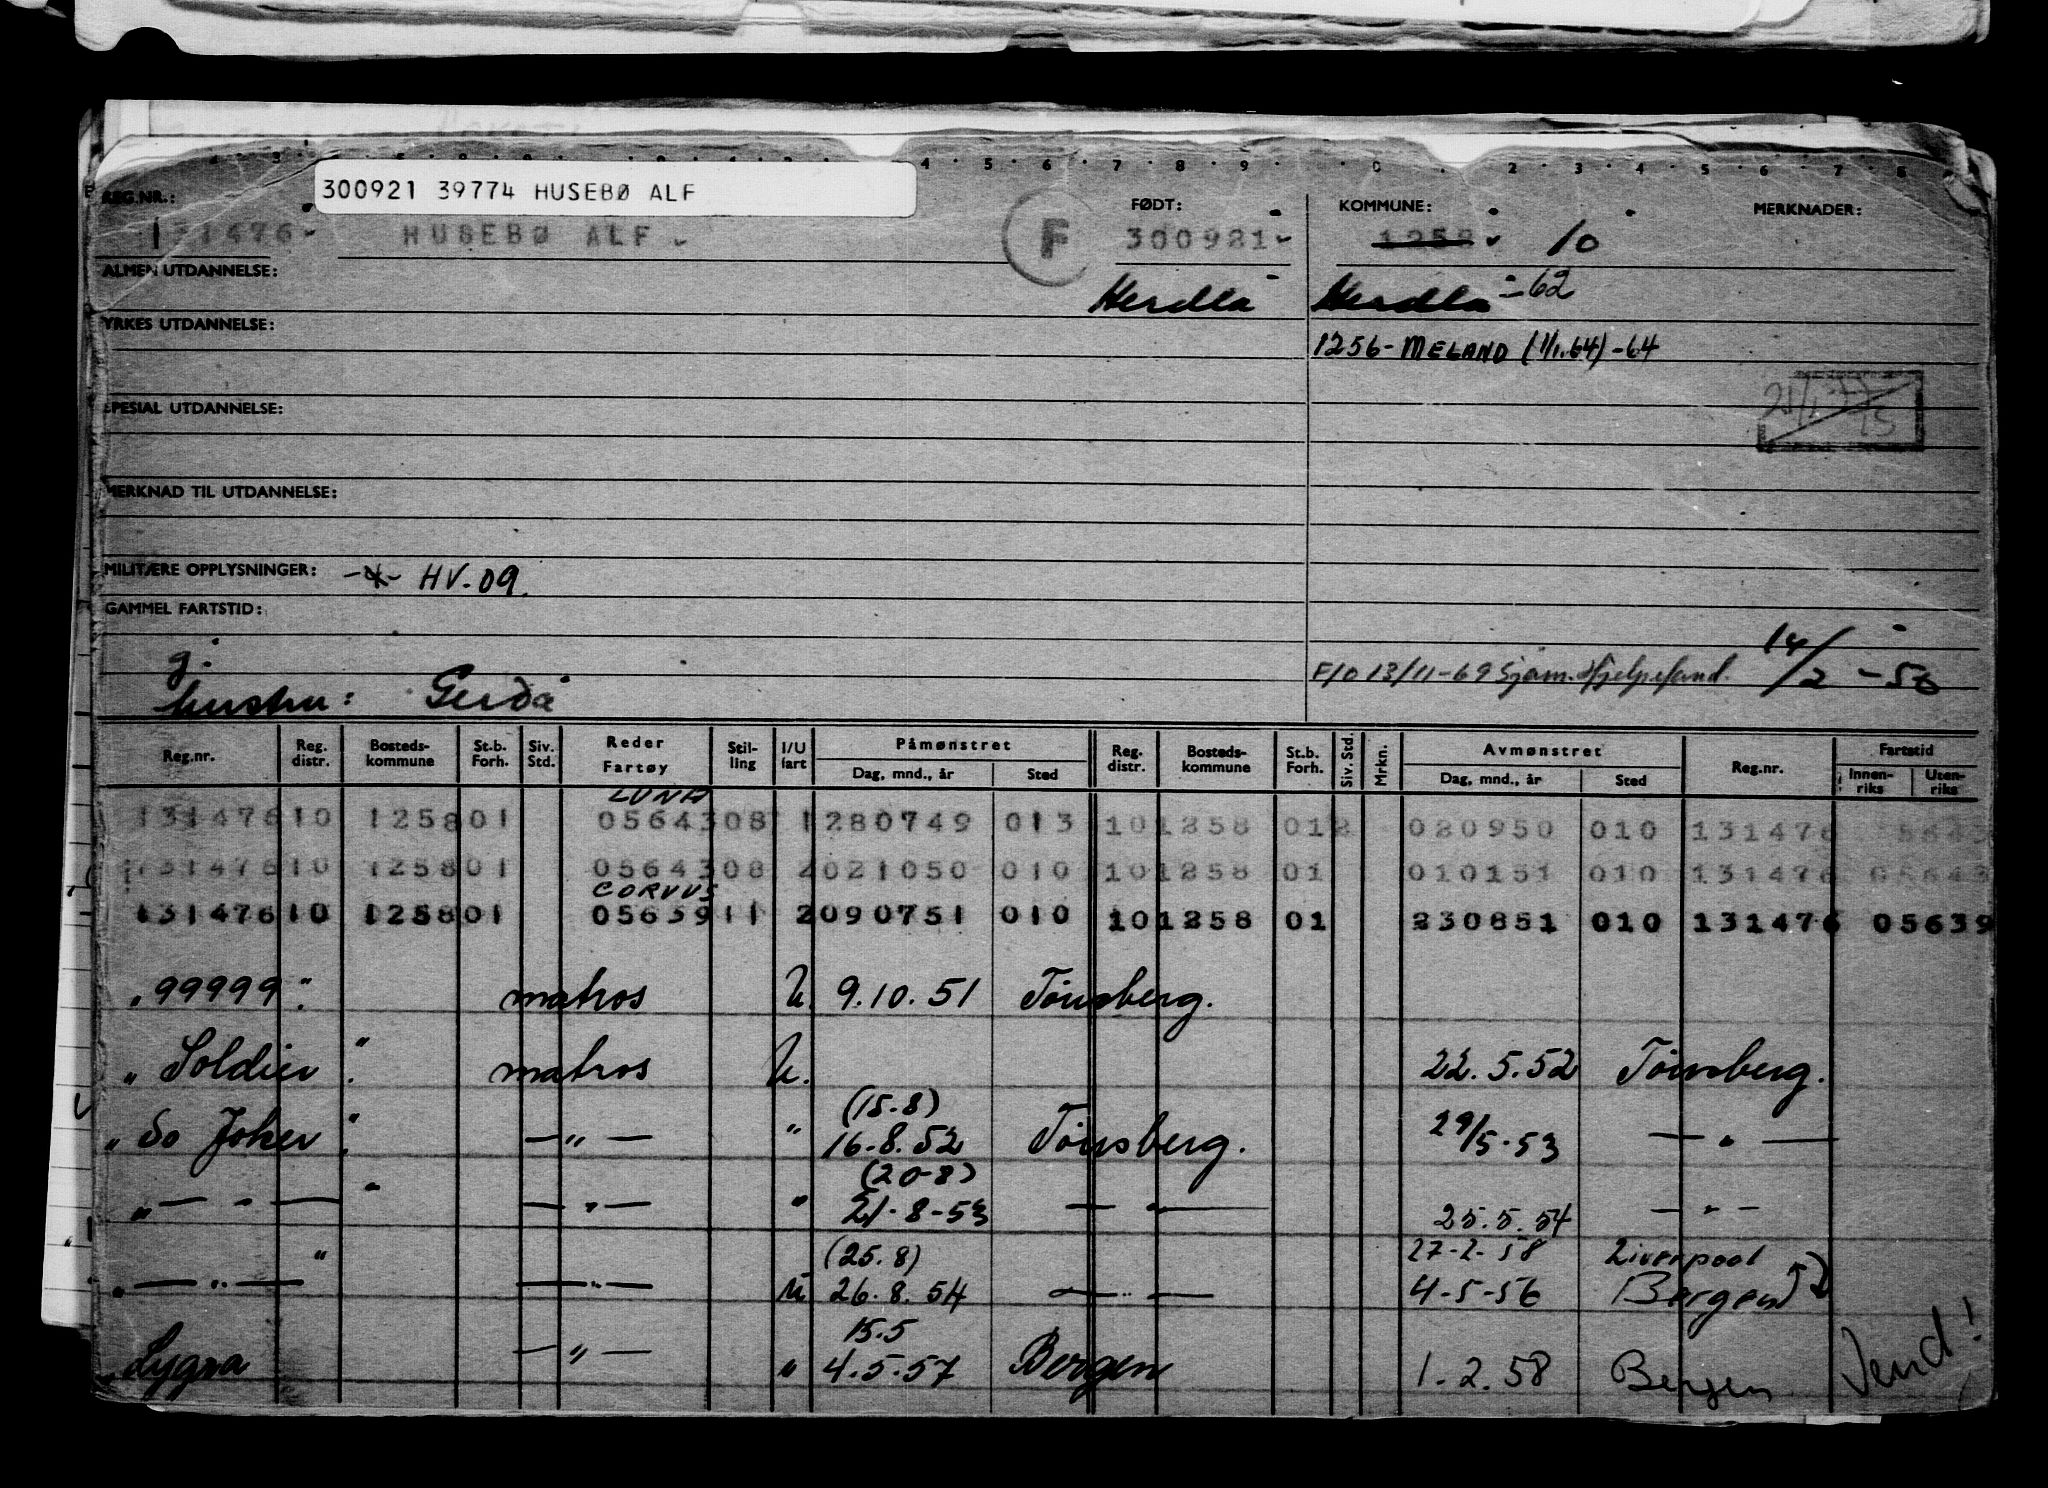 300921 39774 HUSEBØ ALF
REG.NR.: FØDT: KOMMUNE: MERKNADER:
131476 HUSEBØ ALF F 300921 1258 10
ALMEN UTDANNELSE: Herdla Herdla -62
YRKES UTDANNELSE:
1256- MELAND (1/1.64) -64
SPESIAL UTDANNELSE:
MERKNAD TIL UTDANNELSE:
MILITÆRE OPPLYSNINGER: HV-09.
GAMMEL FARTSTID:
g.
F/O 13/11-69 Sjøm. Hjelpefond. 14/2 -56
hustru: Gerda
Reg.nr. Reg. distr. Bosteds-kommune St.b. Forh. Siv. Std. Reder Fartøy Stil-ling I/U fart Påmønstret Dag, mnd., år Sted Reg. distr. Bosteds-kommune St.b. Forh. Siv. Std. Mrkn. Avmønstret Dag, mnd., år Sted Reg.nr. Fartstid Innen-riks Uten-riks
LUNA
131476 10 1258 01 05643 08 1 280749 013 10 1258 01 2 020950 010 131476 05643
131476 10 1258 01 05643 08 2 021050 010 10 1258 01 010151 010 131476 05643
CORVUS
131476 10 1258 01 05639 11 2 090751 010 10 1258 01 230851 010 131476 05639
" 99999 " matros U. 9.10.51 Tönsberg.
" Soldier " matros U. 22.5.52 Tönsberg.
(15.8)
" So Joker " — " — " 16.8.52 Tönsberg. 29/5-53 — " —
(20-8)
" — " — " — " — " 21-8-53 — " — 25.5.54 — " —
(25.8) 27-2-58 Liverpool
" — " — " — " — U. 26.8.54 — " — 4-5-56 Bergen
15.5
" Lygra — " — " 4.5.57 Bergen 1.2.58 Bergen Vend!